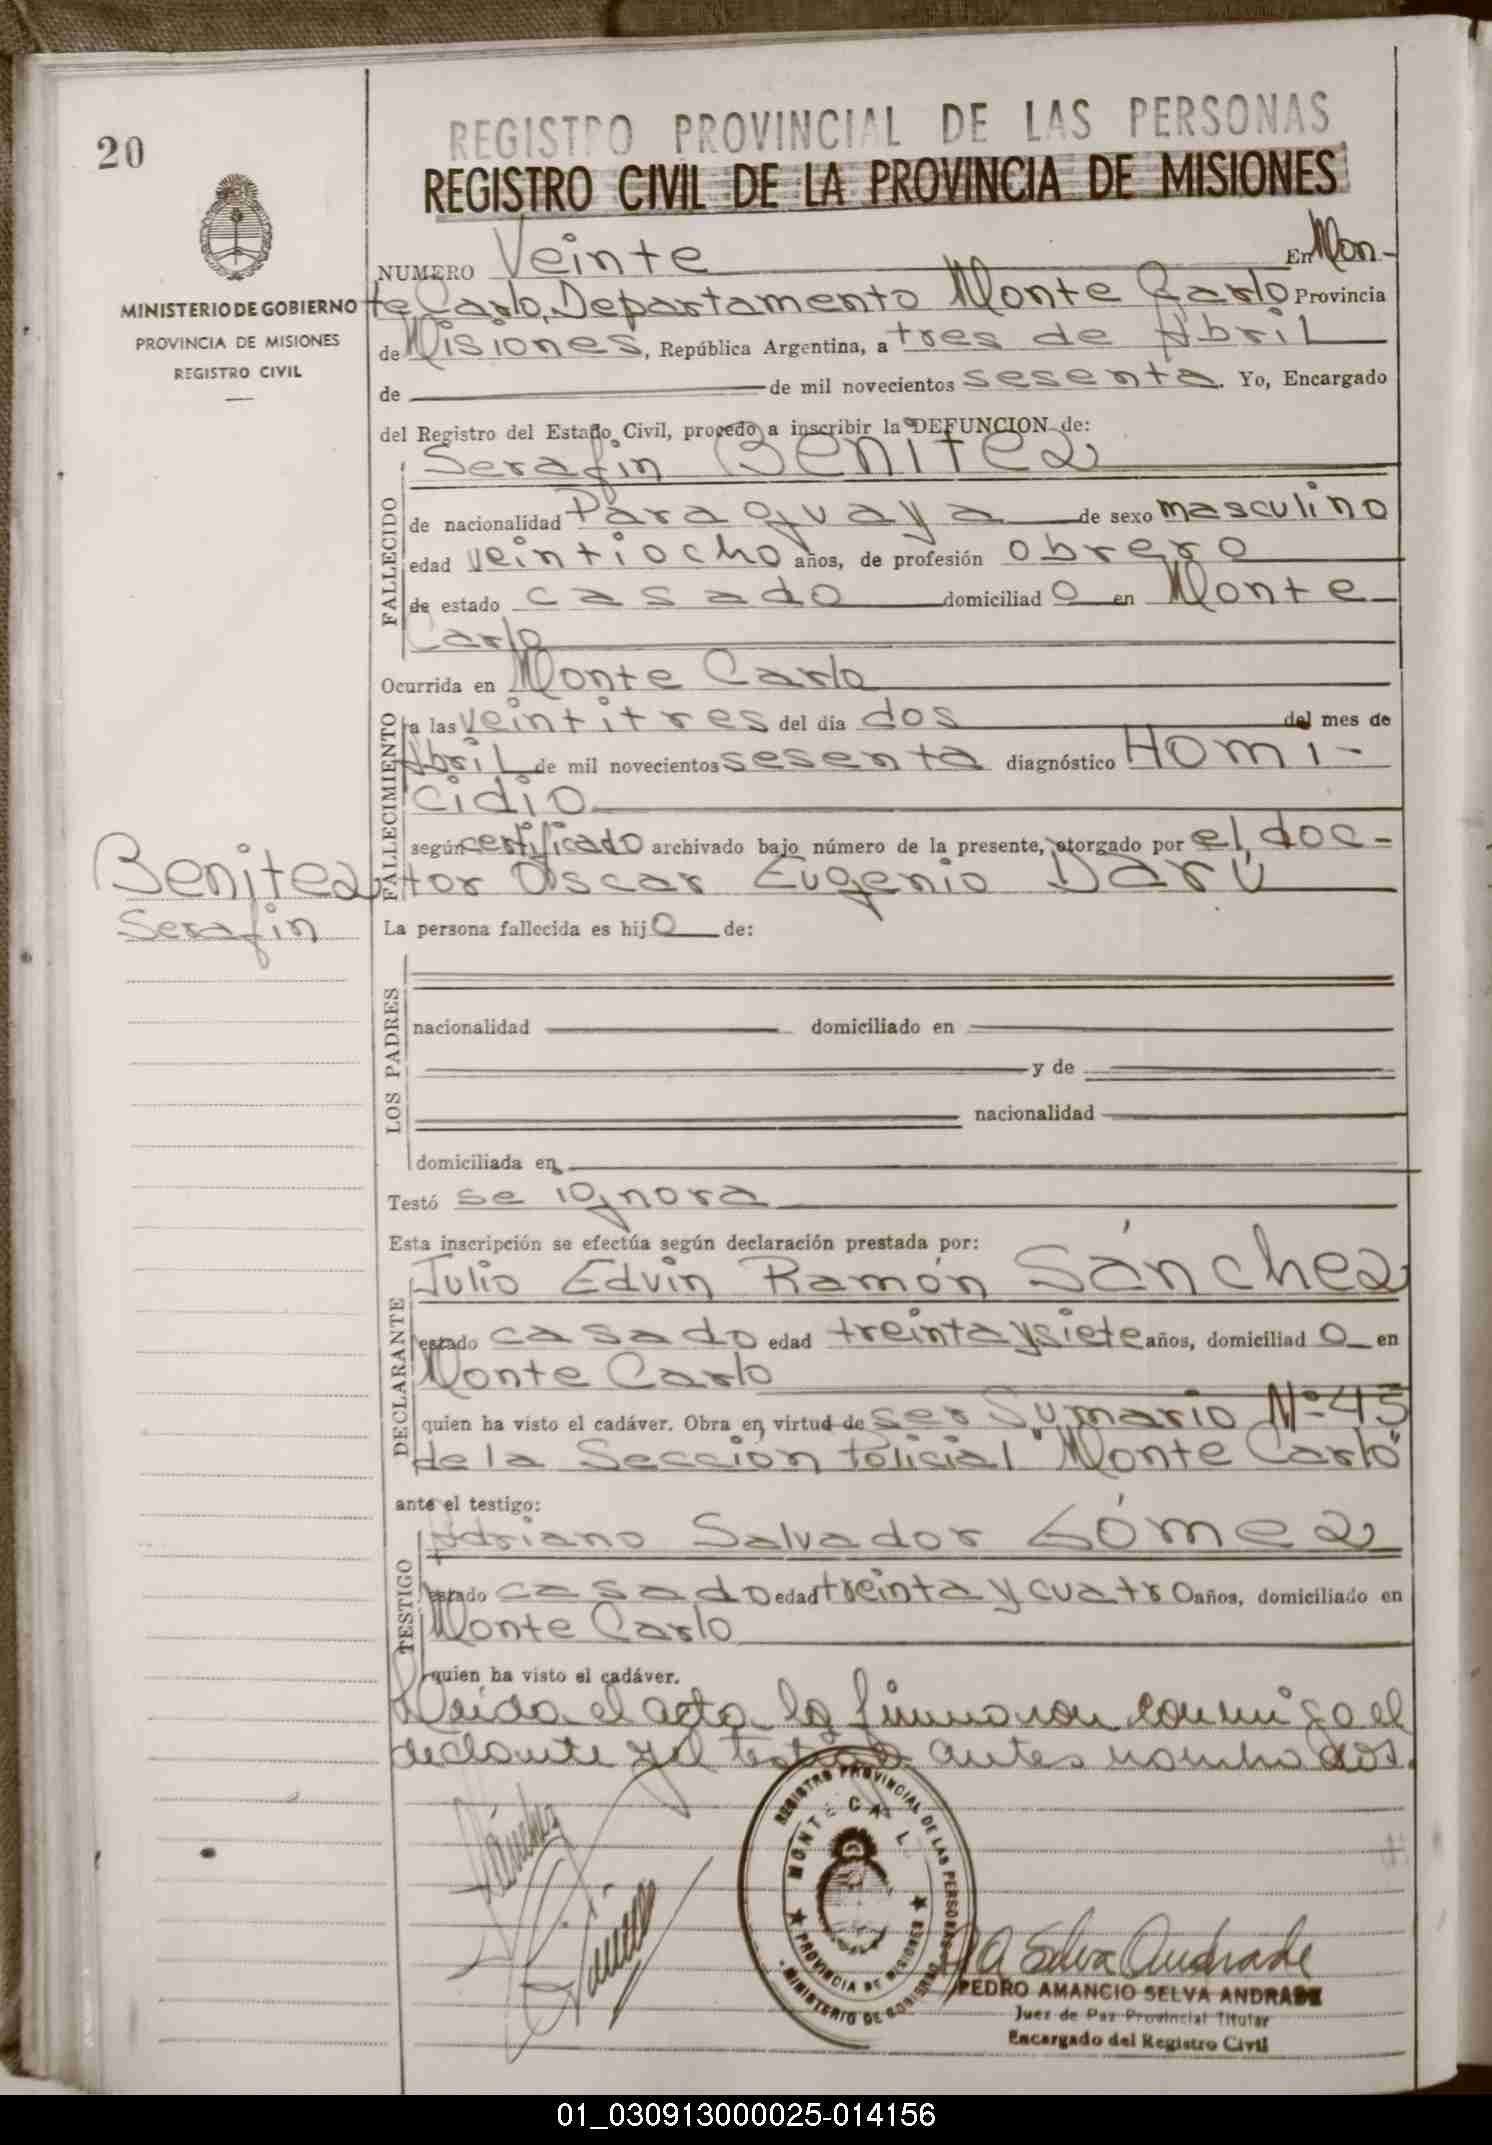 20
REGISTRO PROVINCIAL DE LAS PERSONAS
REGISTRO CIVIL DE LA PROVINCIA DE MISIONES
MINISTERIO DE GOBIERNO
PROVINCIA DE MISIONES
REGISTRO CIVIL
NUMERO Veinte En Mon-
te Carlo, Departamento Monte Carlo Provincia
de Misiones, República Argentina, a tres de Abril
de de mil novecientos sesenta. Yo, Encargado
del Registro del Estado Civil, procedo a inscribir la DEFUNCION de:
FALLECIDO
Serafin BENITEZ
de nacionalidad Paraguaya de sexo masculino
edad veintiocho años, de profesión obrero
de estado casado domiciliad o en Monte
Carlo
Ocurrida en Monte Carlo
FALLECIMIENTO
a las veintitres del día dos del mes de
Abril de mil novecientos sesenta diagnóstico Homi-
cidio
según certificado archivado bajo número de la presente, otorgado por el doc-
tor Oscar Eugenio Darú
Benitez
Serafin
La persona fallecida es hijo de:
LOS PADRES
nacionalidad domiciliado en
y de
nacionalidad
domiciliada en
Testó se ignora
Esta inscripción se efectúa según declaración prestada por:
DECLARANTE
Julio Edvin Ramón Sánchez
estado casado edad treinta y siete años, domiciliad o en
Monte Carlo
quien ha visto el cadáver. Obra en virtud de ser Sumario Nº 45
de la Sección Policial "Monte Carlo"
ante el testigo:
TESTIGO
Adriano Salvador Gómez
estado casado edad treinta y cuatro años, domiciliado en
Monte Carlo
quien ha visto el cadáver.
Leída el acta la firmaron conmigo el
declante y el testigo antes nombrados.
Sánchez
REGISTRO PROVINCIAL DE LAS PERSONAS
MONTE CARLO
PROVINCIA DE MISIONES
MINISTERIO DE GOBIERNO
P A Selva Andrade
PEDRO AMANCIO SELVA ANDRADE
Juez de Paz Provincial Titular
Encargado del Registro Civil
01_030913000025-014156